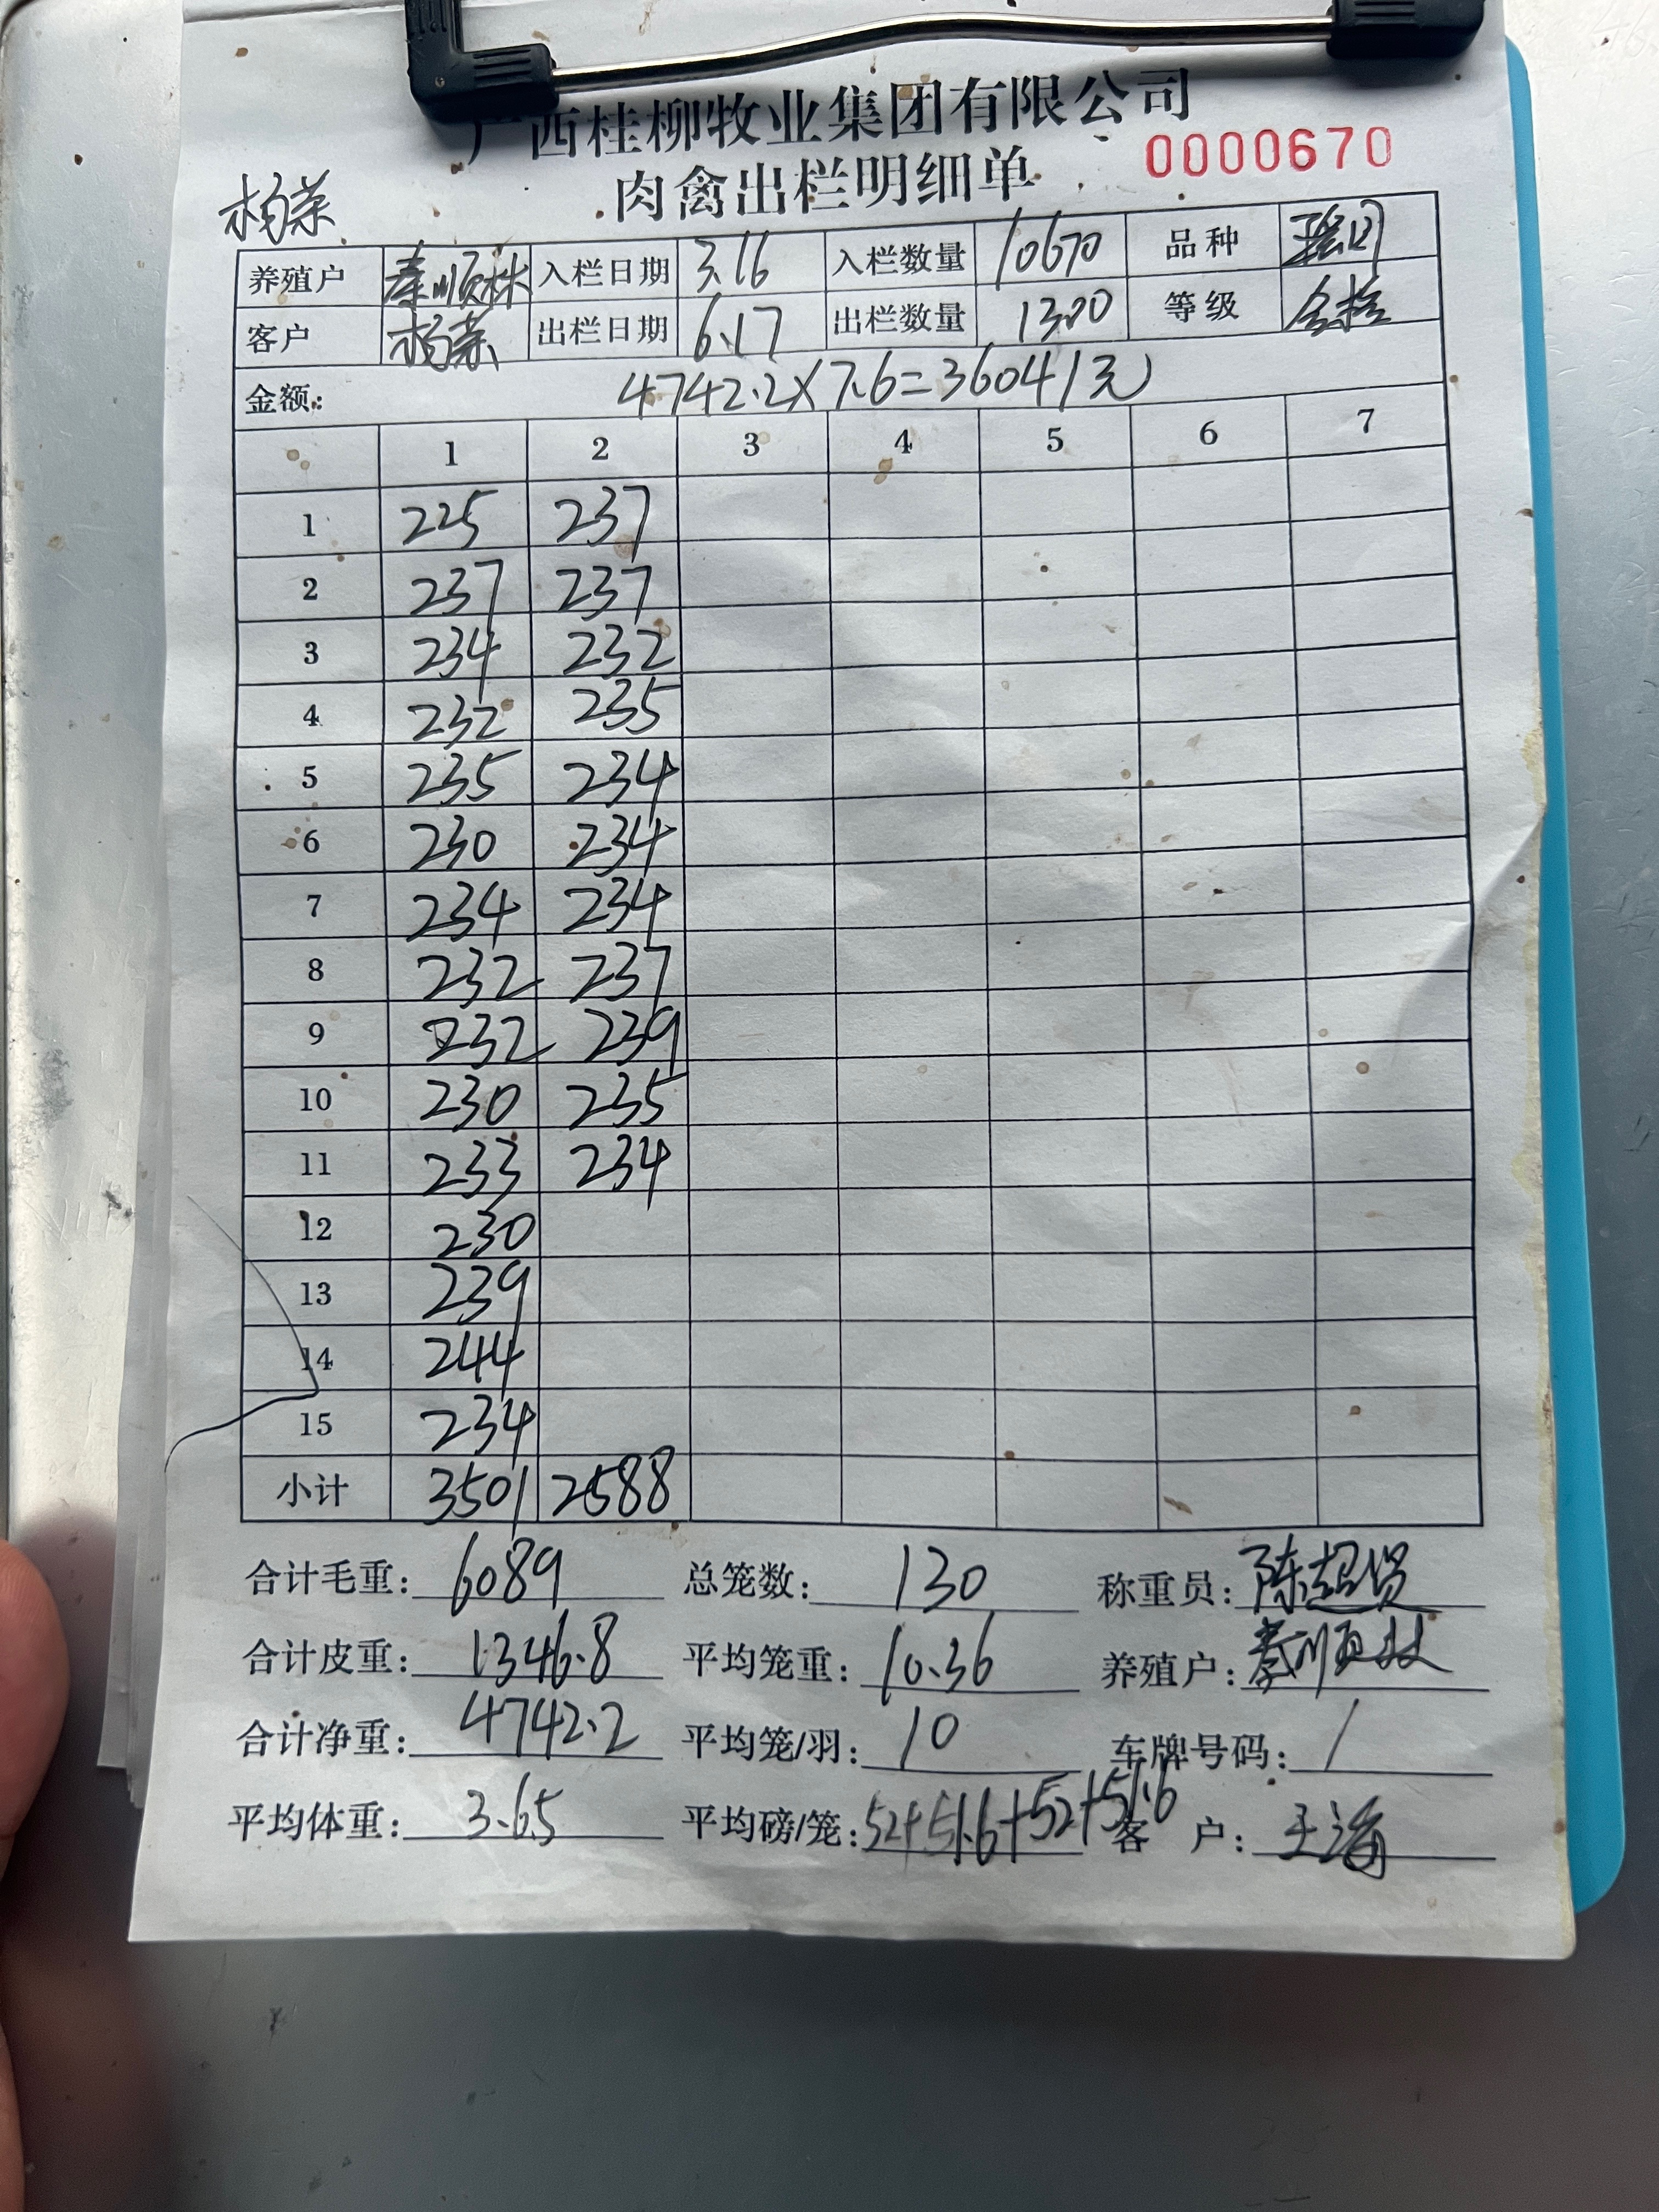 广西桂柳牧业集团有限公司
肉禽出栏明细单 0000670
杨荣
养殖户 秦顺林 入栏日期 3.16 入栏数量 10670 品种
客户 杨荣 出栏日期 6.17 出栏数量 1300 等级
金额: 4742.2×7.6=36041元
1 2 3 4 5 6 7
1 225 237
2 237 237
3 234 232
4 232 235
5 235 234
6 230 234
7 234 234
8 232 237
9 232 239
10 230 235
11 233 234
12 230
13 239
14 244
15 234
小计 3501 2588
合计毛重: 6089 总笼数: 130 称重员:
合计皮重: 1346.8 平均笼重: 10.36 养殖户: 秦顺林
合计净重: 4742.2 平均笼/羽: 10 车牌号码: /
平均体重: 3.65 平均磅/笼: 52+51.6+52+51.6 客 户: 王海